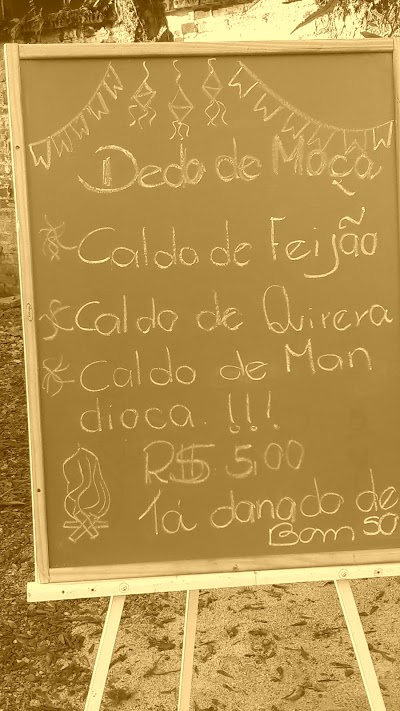 Dedo de Moça
Caldo de Feijão
Caldo de Quirera
Caldo de Man
dioca !!!
R$ 5,00
Tá danado de
Bom sô